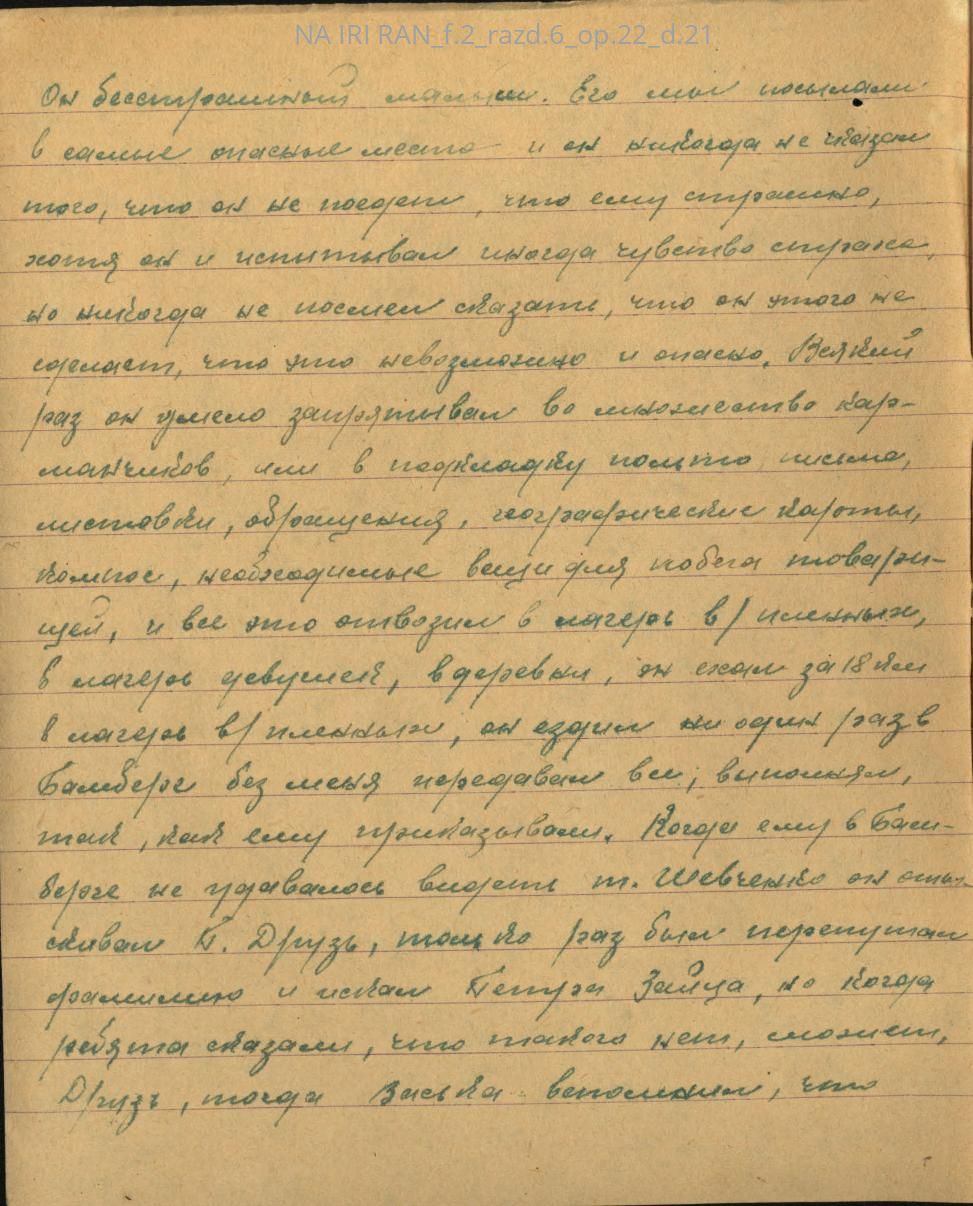 NA IRI RAN_f.2_razd.6_op.22_d.21
Он бесстрашный малыш. Его мы посылали
в самые опасные места и он никогда не сказал
того, что он не поедет, что ему страшно,
хотя он и испытывал иногда чувство страха,
но никогда не посмел сказать, что он этого не
сделает, что это невозможно и опасно. Всякий
раз он умело запрятывал во множество кар-
манчиков, или в подкладку пальто письма,
листовки, обращения, географические карты,
компас, необходимые вещи для побега товари-
щей, и все это отвозил в лагерь в/пленных,
в лагерь девушек, в деревни, он ехал за 18 км
в лагерь в/пленных, он ездил ни один раз в
Бамберг без меня передавал все, выполнял,
так, как ему приказывали. Когда ему в Бам-
берге не удавалось видеть т. Шевченко он оты-
скивал П. Друзь, только раз был перепутал
фамилию и искал Петра Зайца, но когда
ребята сказали, что такого нет, может,
Друзь, тогда Васька вспомнил, что